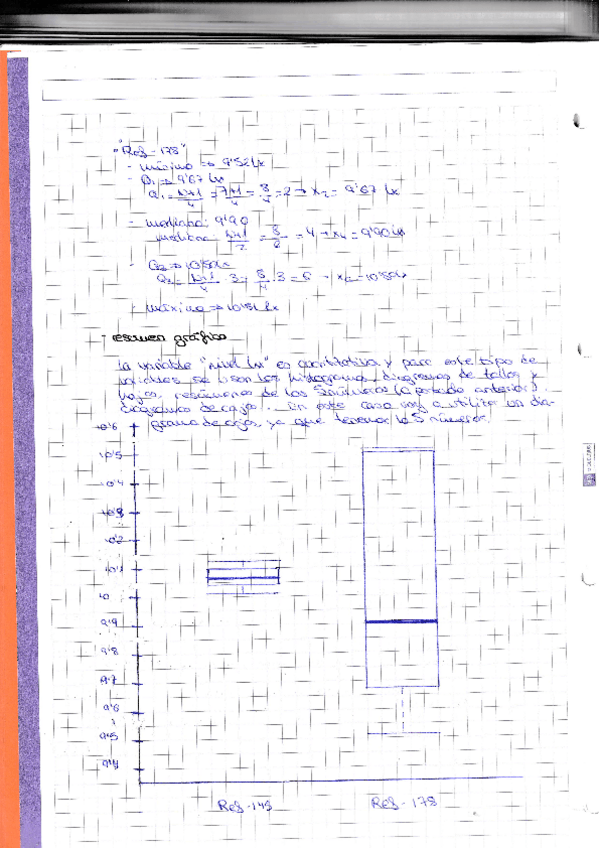 "Ref-178"
- mínimo → 9'52 lx
- Q1 → 9'67 lx
Q1 = n+1/4 = 7+1/4 = 8/4 = 2 → x2 = 9'67 lx
- mediana: 9'90
mediana: n+1/2 = 4 → x4 = 9'90 lx
- Q3 →
3 = 6
- máximo → lx
- resumen gráfico
La variable "nivel lx" es cuantitativa y para este tipo de
variables se usan los histogramas, diagramas de tallos y
hojas, resúmenes de los 5 números (apartado anterior),
diagramas de cajas... En este caso voy a utilizar un dia-
grama de cajas, ya que tenemos los 5 números.
10'6
10'5
10'4
10'3
10'2
10'1
10
9'9
9'8
9'7
9'6
9'5
9'4
Ref-149 Ref-178